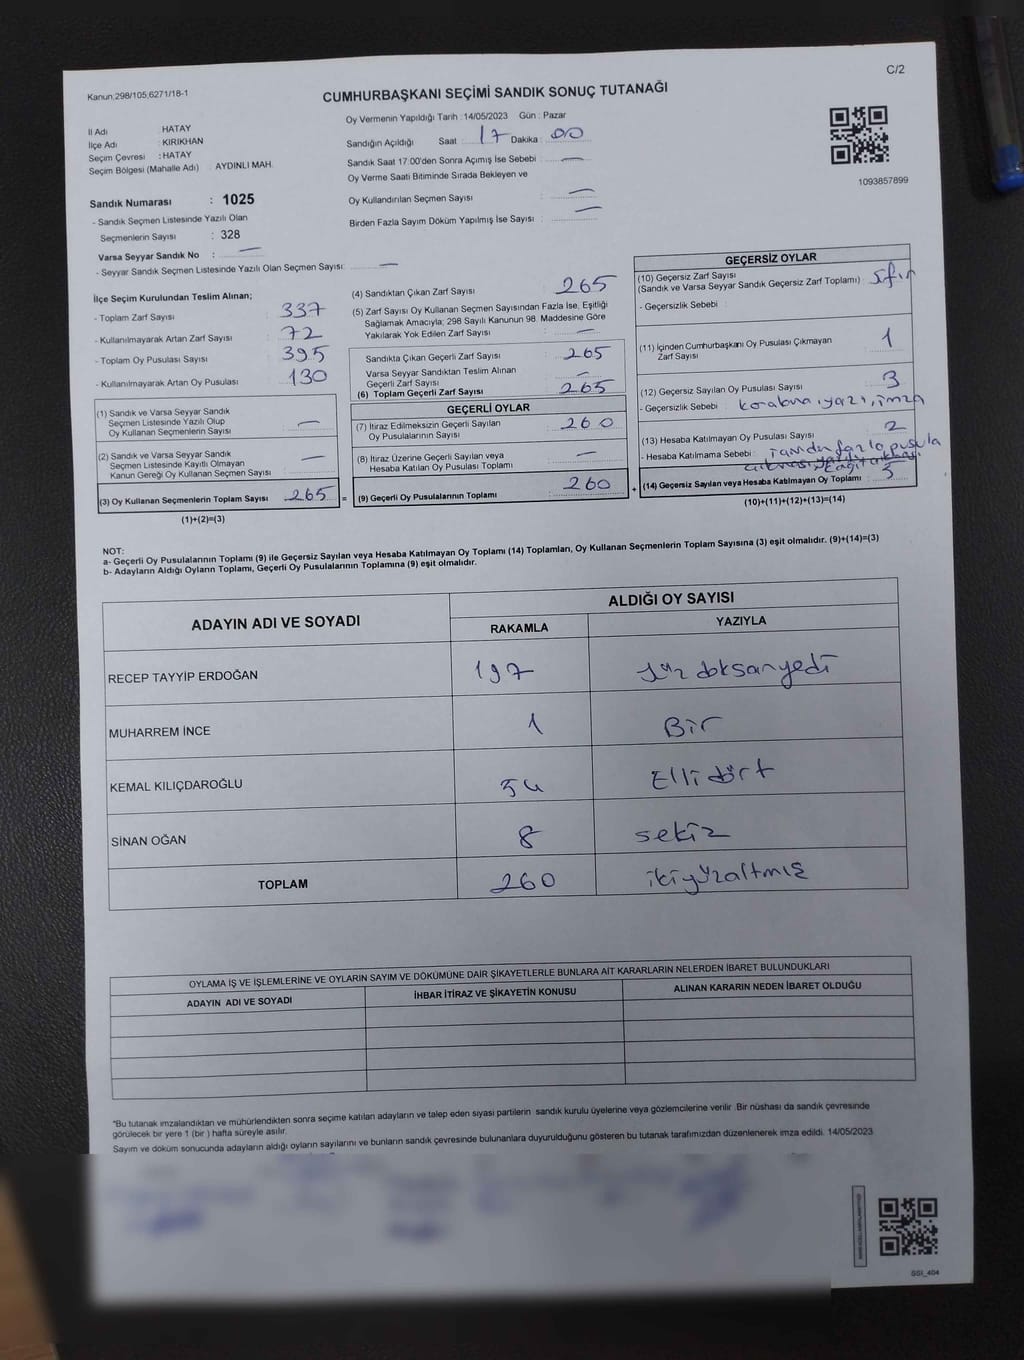 C/2
Kanun,298/105;6271/18-1
CUMHURBAŞKANI SEÇİMİ SANDIK SONUÇ TUTANAĞI
İl Adı HATAY
İlçe Adı : KIRIKHAN
Seçim Çevresi : HATAY
Seçim Bölgesi (Mahalle Adı) : AYDINLI MAH.
Sandık Numarası : 1025
- Sandık Seçmen Listesinde Yazılı Olan
Seçmenlerin Sayısı : 328
Varsa Seyyar Sandık No : —
- Seyyar Sandık Seçmen Listesinde Yazılı Olan Seçmen Sayısı: —
Oy Vermenin Yapıldığı Tarih :14/05/2023 Gün : Pazar
Sandığın Açıldığı Saat : 17 Dakika : 00
Sandık Saat 17.00'den Sonra Açımış İse Sebebi : —
Oy Verme Saati Bitiminde Sırada Bekleyen ve
Oy Kullandırılan Seçmen Sayısı : —
Birden Fazla Sayım Döküm Yapılmış İse Sayısı : —
1093857899
İlçe Seçim Kurulundan Teslim Alınan;
- Toplam Zarf Sayısı : 337
- Kullanılmayarak Artan Zarf Sayısı : 72
- Toplam Oy Pusulası Sayısı : 395
- Kullanılmayarak Artan Oy Pusulası : 130
(1) Sandık ve Varsa Seyyar Sandık
Seçmen Listesinde Yazılı Olup
Oy Kullanan Seçmenlerin Sayısı : —
(2) Sandık ve Varsa Seyyar Sandık
Seçmen Listesinde Kayıtlı Olmayan
Kanun Gereği Oy Kullanan Seçmen Sayısı : —
(3) Oy Kullanan Seçmenlerin Toplam Sayısı : 265 =
(1)+(2)=(3)
(4) Sandıktan Çıkan Zarf Sayısı : 265
(5) Zarf Sayısı Oy Kullanan Seçmen Sayısından Fazla İse, Eşitliği
Sağlamak Amacıyla; 298 Sayılı Kanunun 98. Maddesine Göre
Yakılarak Yok Edilen Zarf Sayısı : —
Sandıkta Çıkan Geçerli Zarf Sayısı : 265
Varsa Seyyar Sandıktan Teslim Alınan
Geçerli Zarf Sayısı : —
(6) Toplam Geçerli Zarf Sayısı : 265
GEÇERLİ OYLAR
(7) İtiraz Edilmeksizin Geçerli Sayılan
Oy Pusulalarının Sayısı : 260
(8) İtiraz Üzerine Geçerli Sayılan veya
Hesaba Katılan Oy Pusulası Toplamı : —
(9) Geçerli Oy Pusulalarının Toplamı : 260 +
GEÇERSİZ OYLAR
(10) Geçersiz Zarf Sayısı
(Sandık ve Varsa Seyyar Sandık Geçersiz Zarf Toplamı) : sıfır
- Geçersizlik Sebebi :
(11) İçinden Cumhurbaşkanı Oy Pusulası Çıkmayan
Zarf Sayısı : 1
(12) Geçersiz Sayılan Oy Pusulası Sayısı : 3
- Geçersizlik Sebebi : yazı, imza
(13) Hesaba Katılmayan Oy Pusulası Sayısı : 2
- Hesaba Katılmama Sebebi : fazla pusula
(14) Geçersiz Sayılan veya Hesaba Katılmayan Oy Toplamı : 5
(10)+(11)+(12)+(13)=(14)
NOT:
a- Geçerli Oy Pusulalarının Toplamı (9) ile Geçersiz Sayılan veya Hesaba Katılmayan Oy Toplamı (14) Toplamları, Oy Kullanan Seçmenlerin Toplam Sayısına (3) eşit olmalıdır. (9)+(14)=(3)
b- Adayların Aldığı Oyların Toplamı, Geçerli Oy Pusulalarının Toplamına (9) eşit olmalıdır.
ADAYIN ADI VE SOYADI
ALDIĞI OY SAYISI
RAKAMLA YAZIYLA
RECEP TAYYİP ERDOĞAN 197 Yüz doksanyedi
MUHARREM İNCE 1 Bir
KEMAL KILIÇDAROĞLU 54 Elli dört
SİNAN OĞAN 8 sekiz
TOPLAM 260 ikiyüzaltmış
OYLAMA İŞ VE İŞLEMLERİNE VE OYLARIN SAYIM VE DÖKÜMÜNE DAİR ŞİKAYETLERLE BUNLARA AİT KARARLARIN NELERDEN İBARET BULUNDUKLARI
ADAYIN ADI VE SOYADI İHBAR İTİRAZ VE ŞİKAYETİN KONUSU ALINAN KARARIN NEDEN İBARET OLDUĞU
*Bu tutanak imzalandıktan ve mühürlendikten sonra seçime katılan adayların ve talep eden siyasi partilerin sandık kurulu üyelerine veya gözlemcilerine verilir .Bir nüshası da sandık çevresinde
görülecek bir yere 1 (bir ) hafta süreyle asılır.
Sayım ve döküm sonucunda adayların aldığı oyların sayılarını ve bunların sandık çevresinde bulunanlara duyurulduğunu gösteren bu tutanak tarafımızdan düzenlenerek imza edildi. 14/05/2023
GSI_404